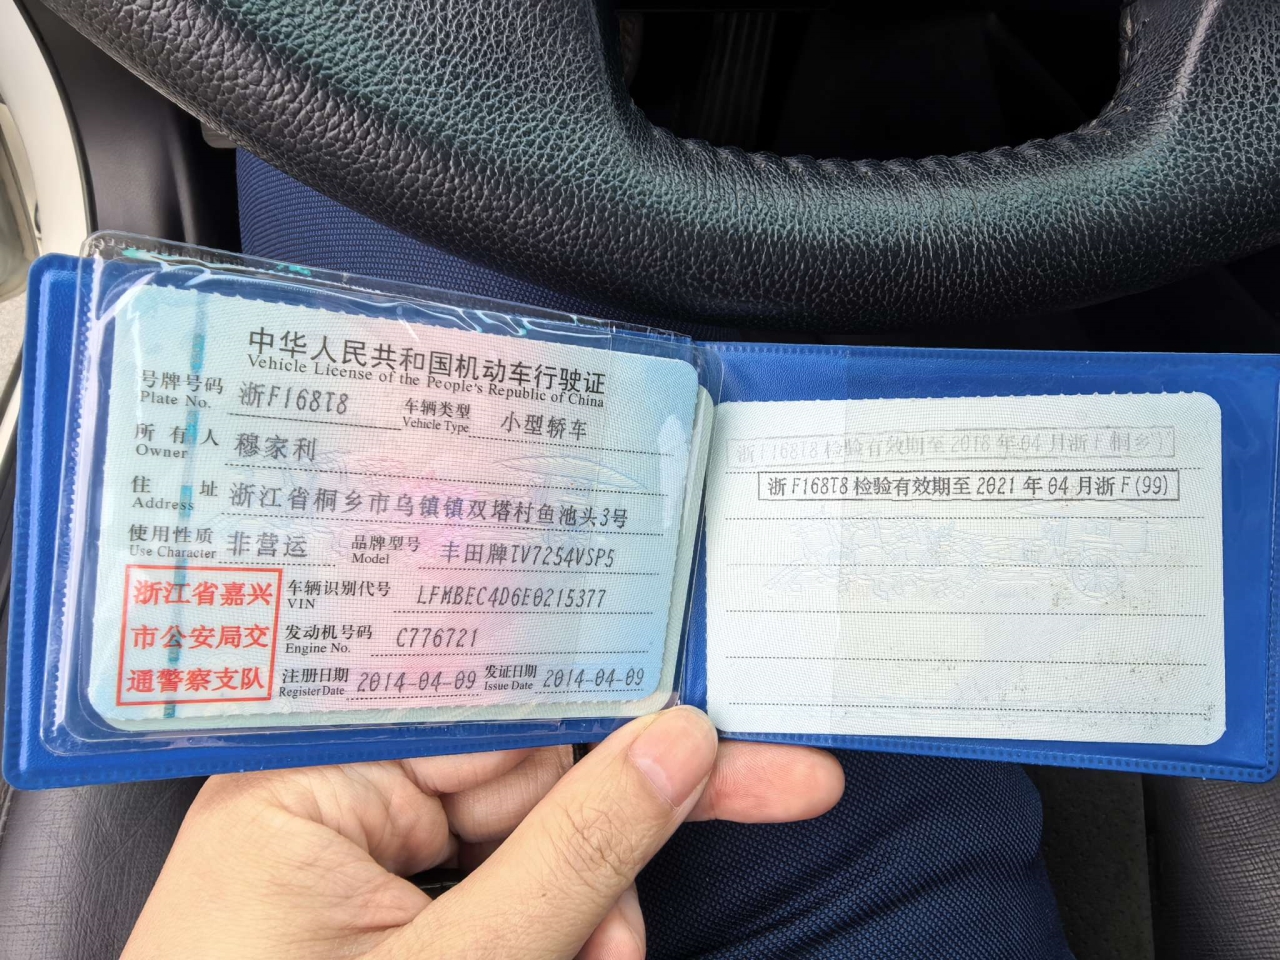 中华人民共和国机动车行驶证
Vehicle License of the People's Republic of China
号牌号码 浙F168T8 车辆类型 小型轿车
Plate No. Vehicle Type
所有人 穆家利
Owner
住址 浙江省桐乡市乌镇镇双塔村鱼池头3号
Address
使用性质 非营运 品牌型号 丰田牌TV7254VSP5
Use Character Model
浙江省嘉兴
市公安局交
通警察支队
车辆识别代号 LFMBEC4D6E0215377
VIN
发动机号码 C776721
Engine No.
注册日期 2014-04-09 发证日期 2014-04-09
Register Date Issue Date
浙F168T8检验有效期至2018年04月浙F(桐乡)
浙F168T8检验有效期至2021年04月浙F(99)